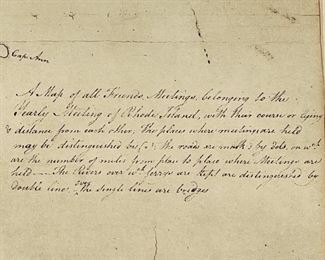 Cape Ann
A Map of all Friends Meetings, belonging to the
Yearly Meeting of Rhode Island, with their course or lying
& distance from each other; The places where meetings are held
may be distinguished by The roads are mark'd by dots, on wch
are the number of miles from place to place where Meetings are
held — The Rivers over wch ferrys are kept are distinguished by
double lines, The single lines are bridges